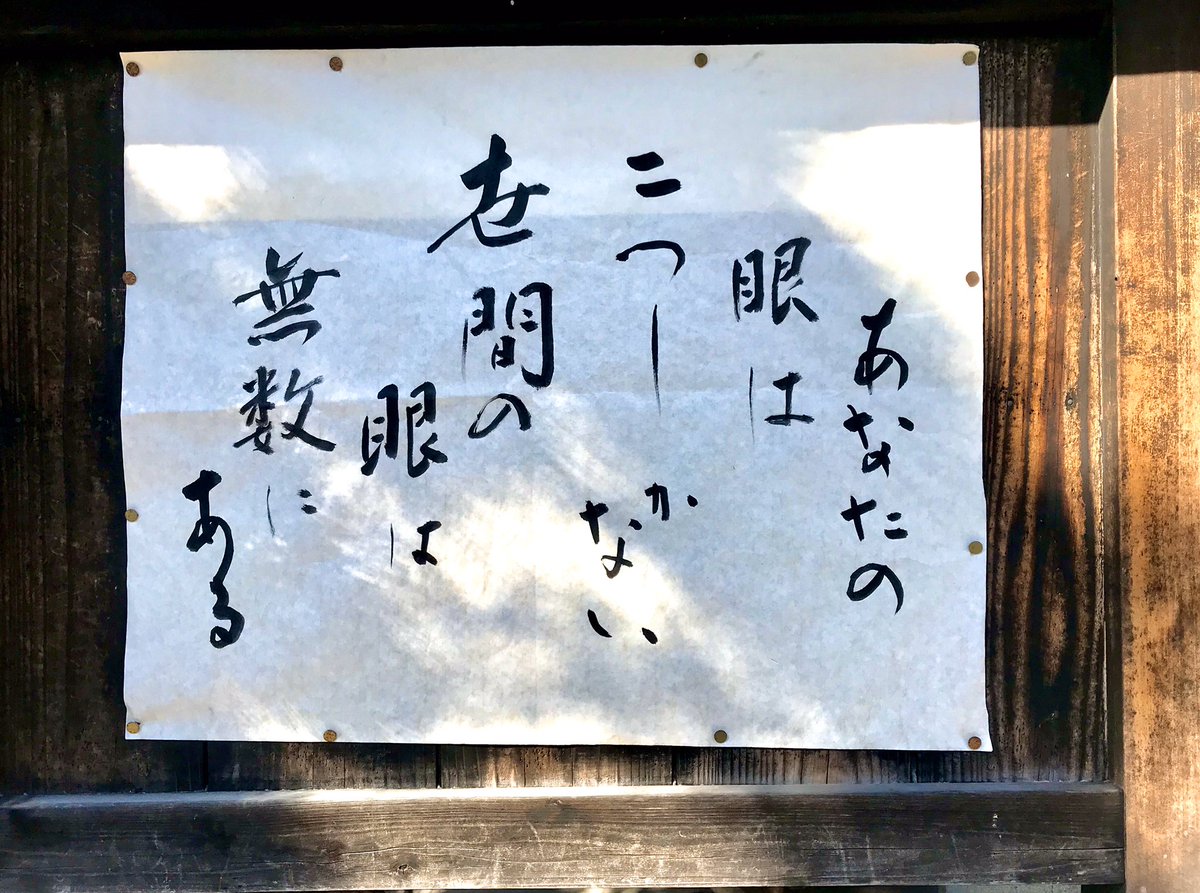 あなたの
眼は
二つしかない
世間の
眼は
無数に
ある